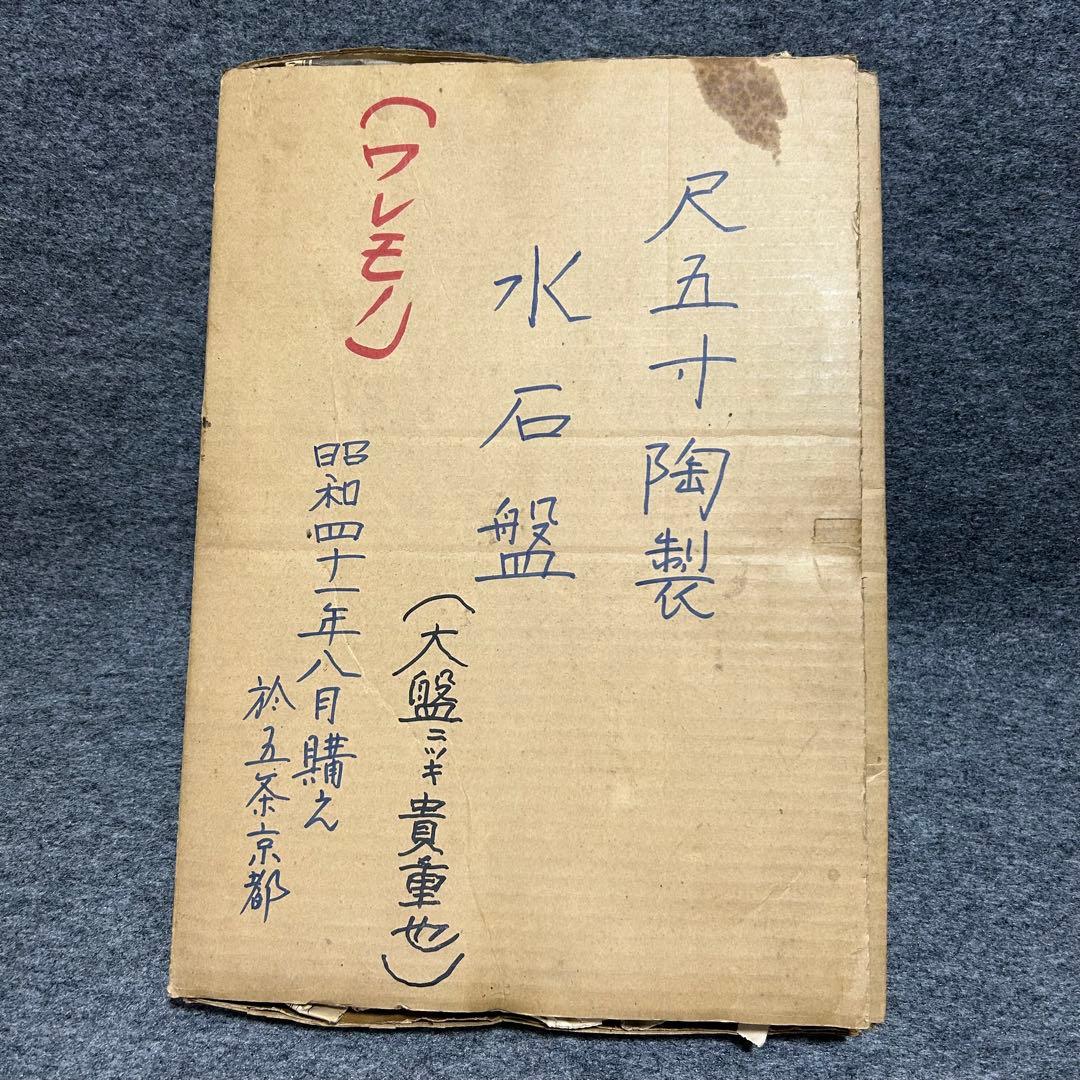 尺五寸陶製
水石盤
(大盤ニツキ貴重也)
(ワレモノ)
昭和四十一年八月購え
於五条京都